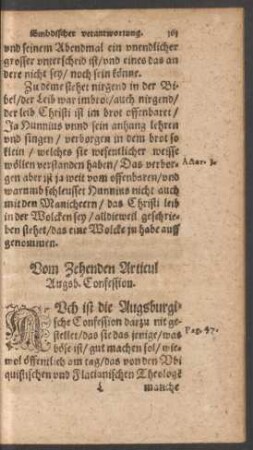 Embdischer verantwortung. 363
vnd seinem Abendmal ein vnendlicher
grosser vnterscheid ist/ vnd eines das an
dere nicht sey/ noch sein könne.
Zu deme stehet nirgend in der Bi-
bel/ der Leib war im brot/ auch nirgend/
der leib Christi ist im brot offenbaret/
Ja Hunnius vnnd sein anhang lehren
vnd singen/ verborgen in dem brot so
klein/ welches sie wesentlicher weisse
wöllen verstanden haben/ Das verbor-
gen aber ist ja weit vom offenbaren/ vnd
warumb schleusset Hunnius nicht auch
mit den Manicheern/ das Christi leib
in der Wolcken sey/ alldieweil geschrie-
ben stehet/ das eine Wolcke zu habe auff
genommen.
Actor. 1.
Vom Zehenden Articul
Augsb. Confession.
AVch ist die Augsburgi-
sche Confession darzu nit ge-
stellet/ das sie das jenige/ was
böse ist/ gut machen sol/ wie-
wol öffentlich am tag/ das von den Vbi
quistischen vnd Flatianischen Theologē
Pag. 57.
L manche